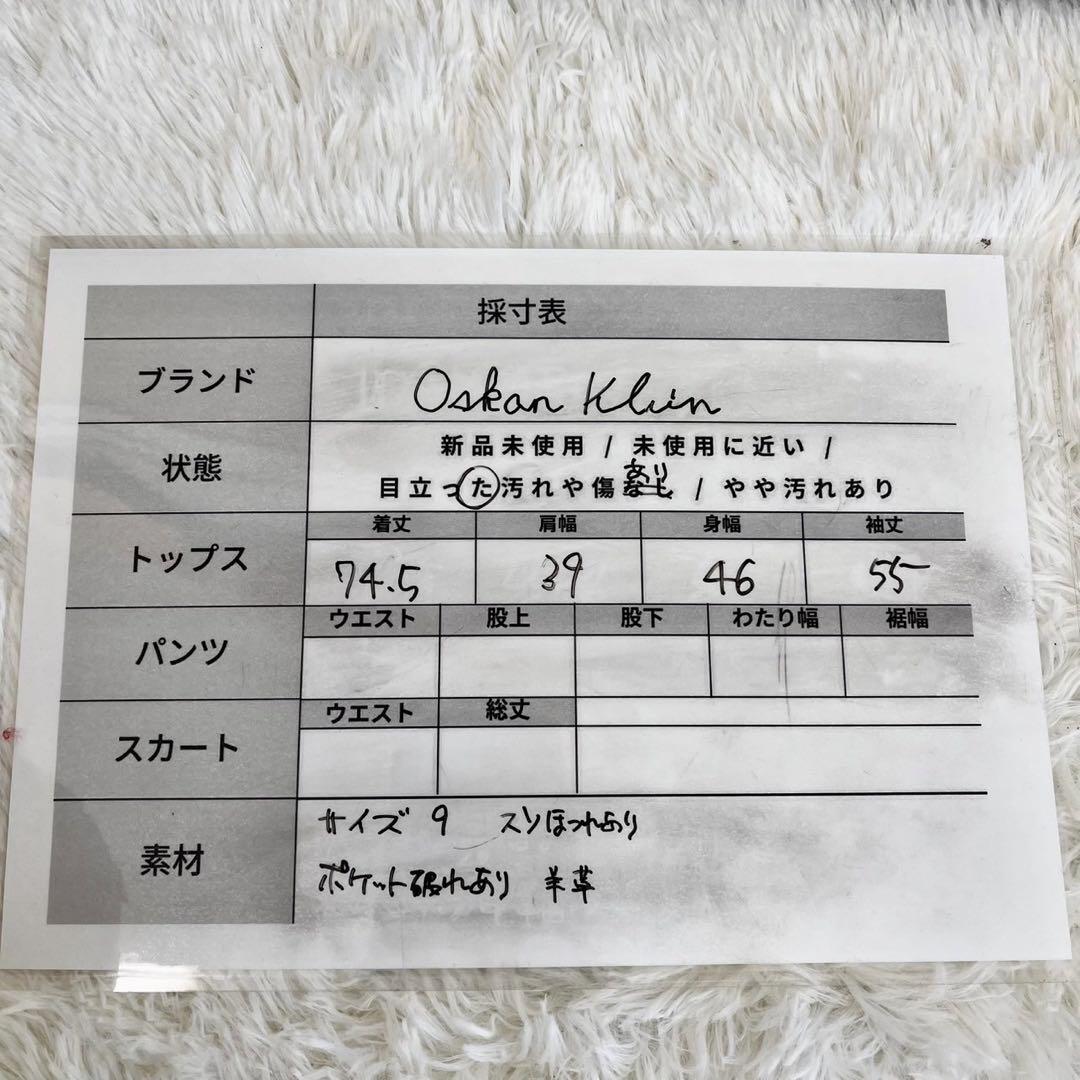 採寸表
ブランド Oskan Klein
状態 新品未使用 / 未使用に近い /
目立った汚れや傷あり / やや汚れあり
トップス 着丈 肩幅 身幅 袖丈
74.5 39 46 55
パンツ ウエスト 股上 股下 わたり幅 裾幅
スカート ウエスト 総丈
素材 サイズ 9 スソほつれあり
ポケット破れあり 羊革